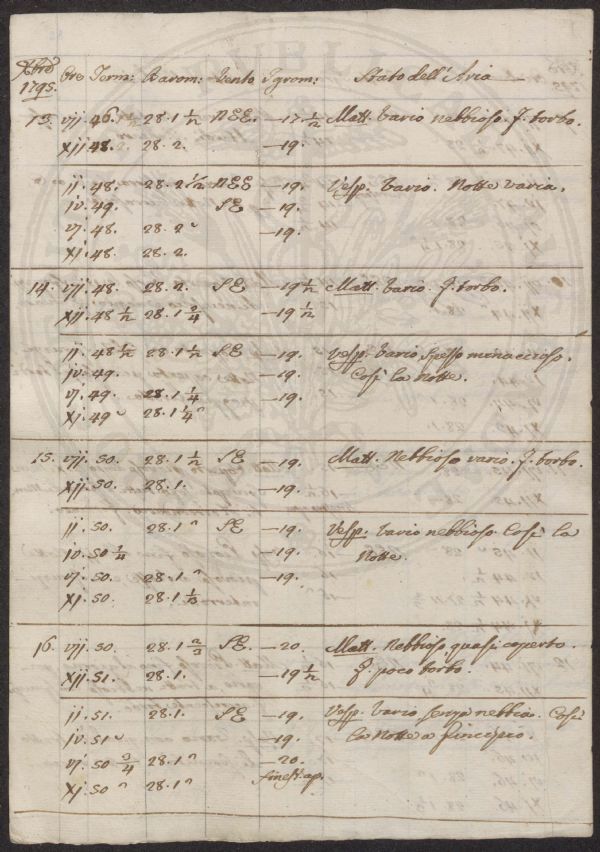 Xbre
1795. Ore Term: Barom: Vento Igrom: Stato dell'Aria
13. vij. 46. 1/2 28. 1 1/2 NEE. —17 1/2 Matt. Vario nebbioso. F. torbo.
xij. 48. 28. 2. —19.
ij. 48. 28. 2 1/2 NEE —19. Vesp. Vario. Notte varia.
iv. 49. SE —19.
vj. 48. 28. 2 —19.
xj. 48. 28. 2.
14. vij. 48. 28. 2. SE —19 1/2 Matt. Vario. F. torbo.
xij. 48 1/2 28. 1 3/4 —19 1/2
ij. 48 1/2 28. 1 1/2 SE —19. Vesp. Vario spesso minaccioso.
iv. 49. —19. Così la Notte.
vj. 49. 28. 1 1/4 —19.
xj. 49 28. 1 1/4
15. vij. 50. 28. 1 1/2 SE —19. Matt. Nebbioso vario. F. torbo.
xij. 50. 28. 1. —19.
ij. 50. 28. 1 SE —19. Vesp. Vario nebbioso. Così la
iv. 50 1/4 —19. Notte.
vj. 50. 28. 1 —19.
xj. 50. 28. 1
16. vij. 50. 28. 1 2/3 SE. —20. Matt. Nebbioso quasi coperto.
xij. 51. 28. 1. —19 1/2 F. poco torbo.
ij. 51. 28. 1. SE —19. Vesp. Vario nebbia. Così
iv. 51 —19. la Notte a principio.
vj. 50 3/4 28. 1 —20.
xj. 50 28. 1 finest. ap.